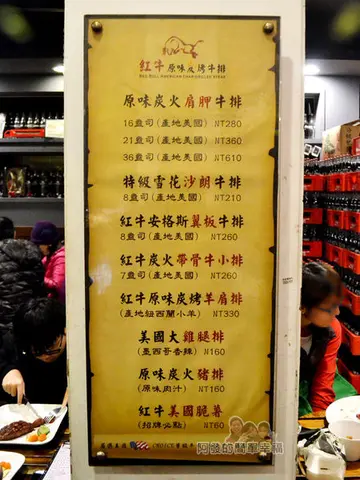 紅牛 原味炭烤牛排
RED BULL AMERICAN CHARGRILLED STEAK
原味炭火肩胛牛排
16盎司(產地美國) NT280
21盎司(產地美國) NT360
36盎司(產地美國) NT610
特級雪花沙朗牛排
8盎司(產地美國) NT210
紅牛安格斯翼板牛排
8盎司(產地美國) NT260
紅牛炭火帶骨牛小排
7盎司(產地美國) NT260
紅牛原味炭烤羊肩排
(產地紐西蘭小羊) NT330
美國大雞腿排
(墨西哥香辣) N160
原味炭火豬排
(原味肉汁) NT160
紅牛美國脆薯
(招牌必點) NT60
CHOICE
阿發的簡單幸福